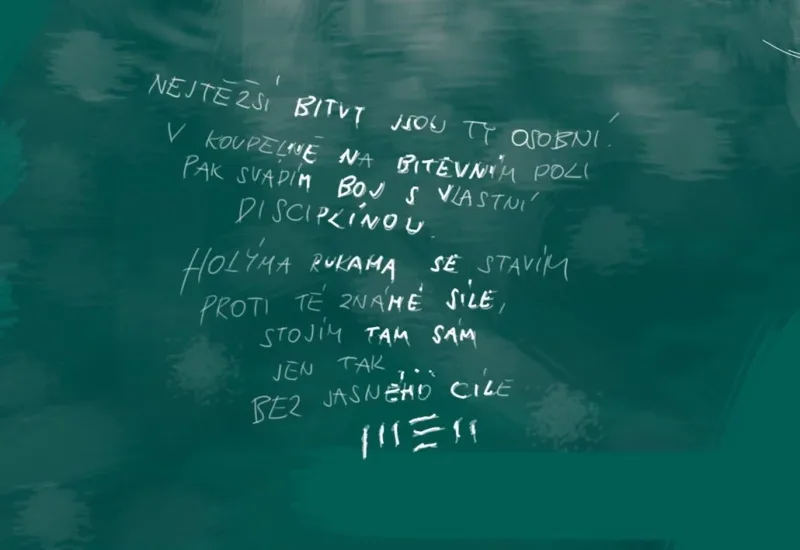 NEJTĚŽŠÍ BITVY JSOU TY OSOBNÍ.
V KOUPELNĚ NA BITEVNÍM POLI
PAK SVÁDÍM BOJ S VLASTNÍ
DISCIPLÍNOU.
HOLÝMA RUKAMA SE STAVÍM
PROTI TÉ ZNÁMÉ SÍLE,
STOJÍM TAM SÁM
JEN TAK...
BEZ JASNÉHO CÍLE